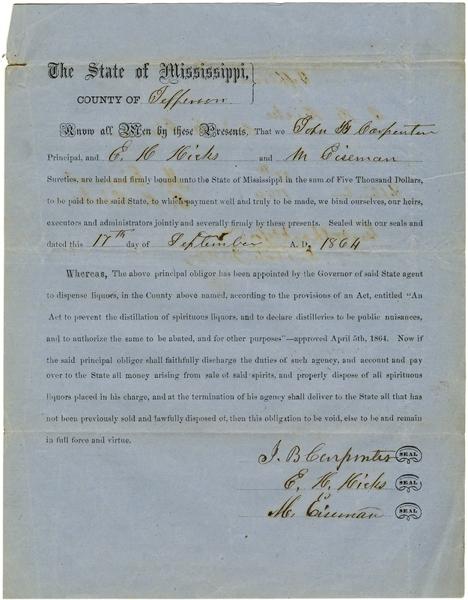 The State of Mississippi,
COUNTY OF Jefferson
Know all Men by these Presents, That we John B Carpenter
Principal, and E. H Hicks and M Eiseman
Sureties, are held and firmly bound unto the State of Mississippi in the sum of Five Thousand Dollars,
to be paid to the said State, to which payment well and truly to be made, we bind ourselves, our heirs,
executors and administrators jointly and severally firmly by these presents. Sealed with our seals and
dated this 17th day of September A. D. 1864
Whereas, The above principal obligor has been appointed by the Governor of said State agent
to dispense liquors, in the County above named, according to the provisions of an Act, entitled "An
Act to prevent the distillation of spirituous liquors, and to declare distilleries to be public nuisances,
and to authorize the same to be abated, and for other purposes"—approved April 5th, 1864. Now if
the said principal obligor shall faithfully discharge the duties of such agency, and account and pay
over to the State all money arising from sale of said spirits, and properly dispose of all spirituous
liquors placed in his charge, and at the termination of his agency shall deliver to the State all that has
not been previously sold and lawfully disposed of, then this obligation to be void, else to be and remain
in full force and virtue.
J. B Carpenter SEAL
E. H. Hicks SEAL
M. Eiseman SEAL